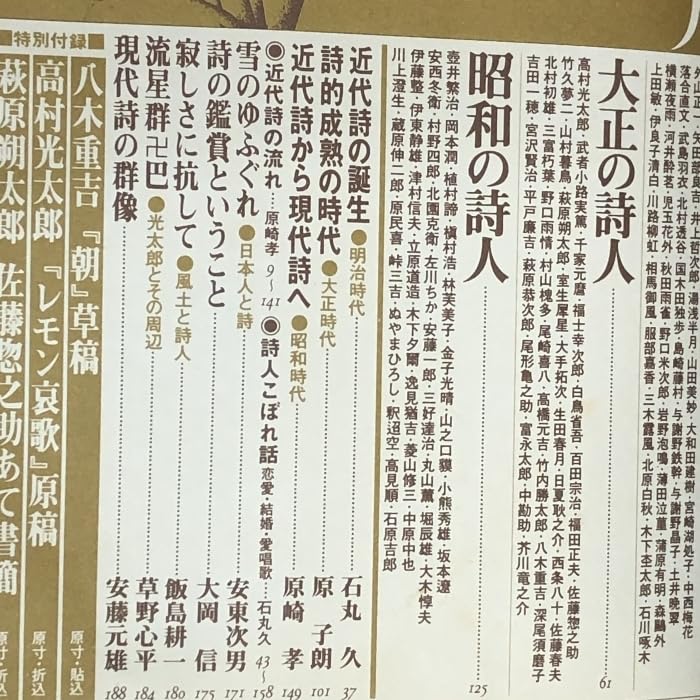 外山正一・矢田部良吉・井上哲次郎・湯浅半月・山田美妙・大和田建樹・宮崎湖処子・中西梅花
落合直文・武島羽衣・北村透谷・国木田独歩・島崎藤村・与謝野鉄幹・与謝野晶子・土井晩翠
横瀬夜雨・河井酔茗・児玉花外・秋田雨雀・野口米次郎・岩野泡鳴・薄田泣菫・蒲原有明・森鷗外
上田敏・伊良子清白・川路柳虹・相馬御風・服部嘉香・三木露風・北原白秋・木下杢太郎・石川啄木
大正の詩人 61
高村光太郎・武者小路実篤・千家元麿・福士幸次郎・白鳥省吾・百田宗治・福田正夫・佐藤惣之助
竹久夢二・山村暮鳥・萩原朔太郎・室生犀星・大手拓次・生田春月・日夏耿之介・西条八十・佐藤春夫
北村初雄・三富朽葉・野口雨情・村山槐多・尾崎喜八・高橋元吉・竹内勝太郎・八木重吉・深尾須磨子
吉田一穂・宮沢賢治・平戸廉吉・萩原恭次郎・尾形亀之助・富永太郎・中勘助・芥川竜之介
昭和の詩人 125
壺井繁治・岡本潤・植村諦・槇村浩・林芙美子・金子光晴・山之口貘・小熊秀雄・坂本遼
安西冬衛・村野四郎・北園克衛・左川ちか・安藤一郎・三好達治・丸山薫・堀辰雄・大木惇夫
伊藤整・伊東静雄・津村信夫・立原道造・木下夕爾・逸見猶吉・菱山修三・中原中也
川上澄生・蔵原伸二郎・原民喜・峠三吉・ぬやまひろし・釈迢空・高見順・石原吉郎
近代詩の誕生 ●明治時代 石丸 久 37
詩的成熟の時代 ●大正時代 原 子朗 101
近代詩から現代詩へ ●昭和時代 原崎 孝 149
●近代詩の流れ 原崎孝 9〜141 ●詩人こぼれ話 恋愛・結婚・愛唱歌 石丸久 43〜158
雪のゆふぐれ ●日本人と詩 安東次男 171
詩の鑑賞ということ 大岡 信 175
寂しさに抗して ●風土と詩人 飯島耕一 180
流星群卍巴 ●光太郎とその周辺 草野心平 184
現代詩の群像 安藤元雄 188
■特別付録■
八木重吉『朝』草稿 原寸・貼込
高村光太郎『レモン哀歌』原稿 原寸・折込
萩原朔太郎 佐藤惣之助あて書簡 原寸・折込